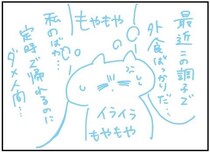 最近この調子で
外食ばっかりだ…
もやもや
私の
定時で帰れるのに
ダメ人間…
イライラ
もやもや